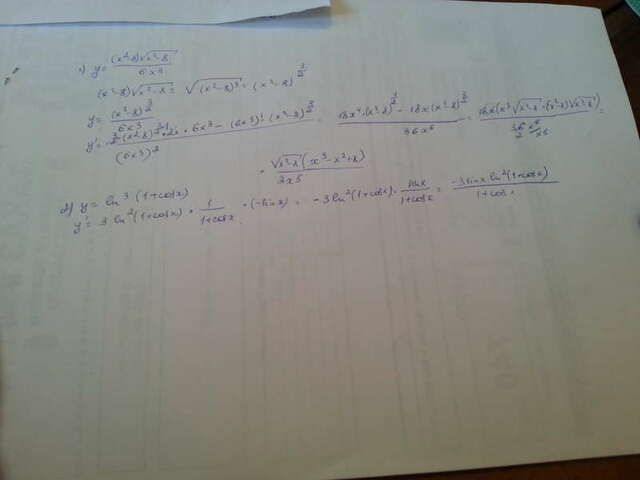 1) y = (x²-8)√(x²-8) / 6x³
(x²-8)√(x²-8) = √(x²-8)³ = (x²-8)^(3/2)
y = (x²-8)^(3/2) / 6x³
y' = 3/2 (x²-8) · 6x³ - (6x³)' (x²-8)^(3/2) / (6x³)² = 18x⁴ · (x²-8)^(1/2) - 18x (x²-8)^(3/2) / 36x⁶ =
= √(x²-8) (x³-x²+8) / 2x5
2) y = ln³ (1+cosx)
y' = 3 ln² (1+cosx) · 1/(1+cosx) · (-sinx) = -3 ln² (1+cosx) · sinx/(1+cosx) = -3sinx ln² (1+cosx) / 1+cosx